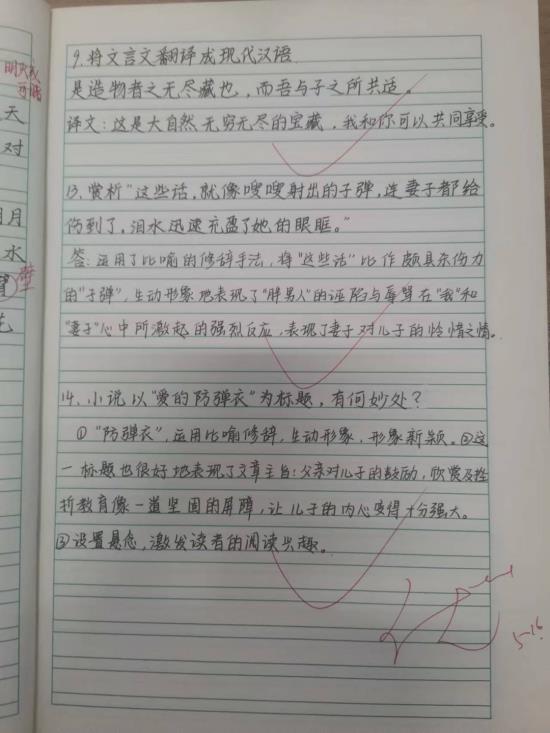 9.将文言文翻译成现代汉语
是造物者之无尽藏也，而吾与子之所共适。
译文：这是大自然无穷无尽的宝藏，我和你可以共同享受。
13.赏析"这些话，就像嗖嗖射出的子弹，连妻子都给
伤到了，泪水迅速充盈了她的眼眶。"
答：运用了比喻的修辞手法，将"这些话"比作颇具杀伤力
的"子弹"，生动形象地表现了"胖男人"的诬陷与辱骂在"我"和
"妻子"心中所激起的强烈反应，表现了妻子对儿子的怜惜之情。
14.小说以"爱的防弹衣"为标题，有何妙处？
①"防弹衣"，运用比喻修辞，生动形象，形象新颖。②这
一标题也很好地表现了文章主旨：父亲对儿子的鼓励，欣赏及挫
折教育像一道坚固的屏障，让儿子的内心变得十分强大。
③设置悬念，激发读者的阅读兴趣。
5-16
天
对
月
水